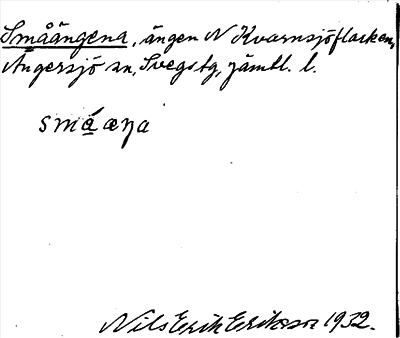 Småängena, ängen N Kvarnsjöflacken,
Ängersjö sn, Svegs tg, Jämtl. l.
småæŋa
Nils Erik Eriksson 1932.